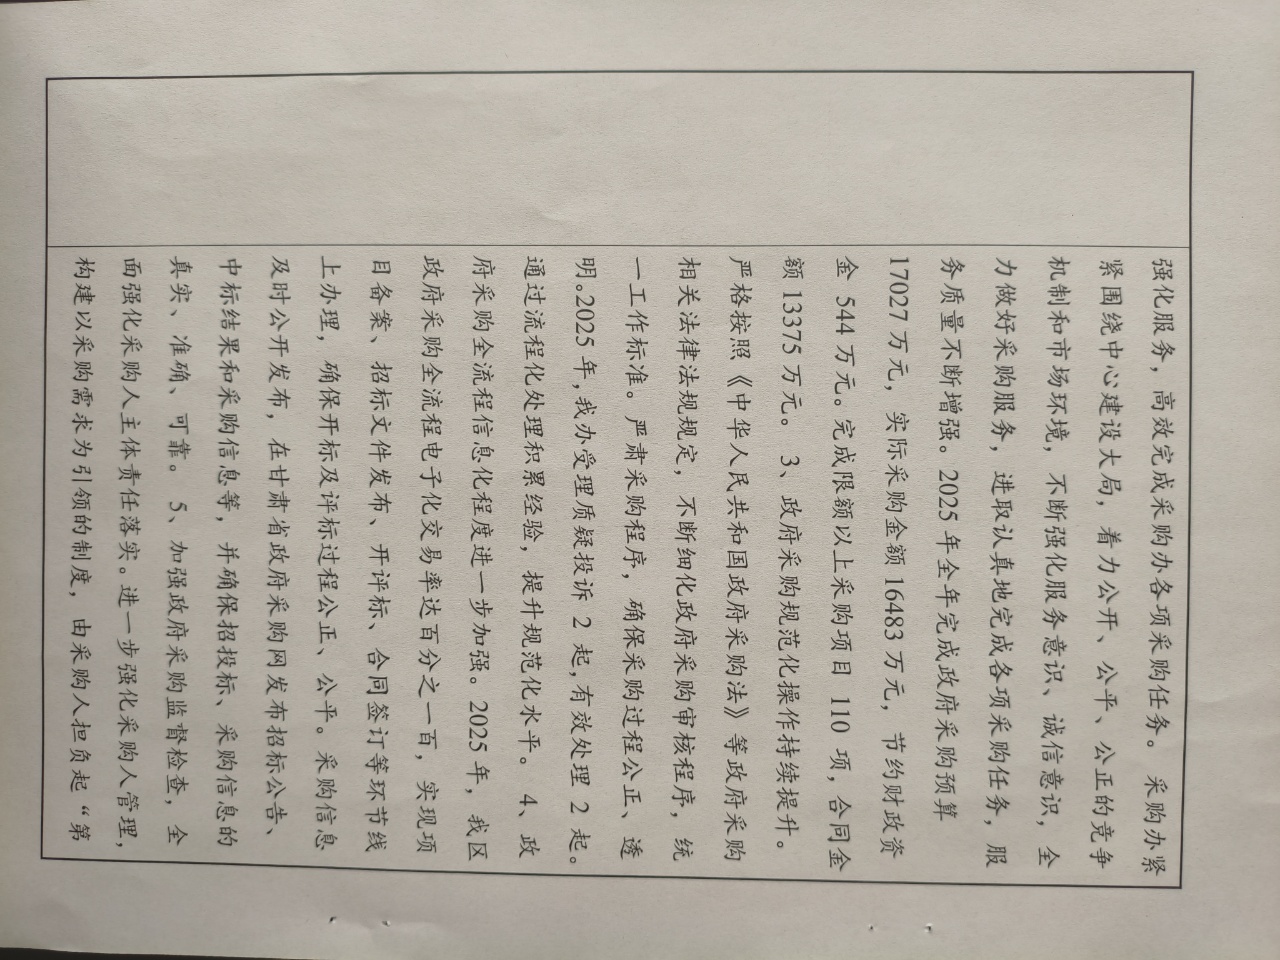 强化服务，高效完成采购办各项采购任务。 采购办紧
紧围绕中心建设大局，着力公开、公平、公正的竞争
机制和市场环境，不断强化服务意识、诚信意识，全
力做好采购服务，进取认真地完成各项采购任务，服
务质量不断增强。2025 年全年完成政府采购预算
17027 万元，实际采购金额 16483 万元，节约财政资
金 544 万元。完成限额以上采购项目 110 项，合同金
额 13375 万元。 3、政府采购规范化操作持续提升。
严格按照《中华人民共和国政府采购法》等政府采购
相关法律法规规定，不断细化政府采购审核程序，统
一工作标准。严肃采购程序，确保采购过程公正、透
明。2025 年，我办受理质疑投诉 2 起，有效处理 2 起。
通过流程化处理积累经验，提升规范化水平。 4、政
府采购全流程信息化程度进一步加强。2025 年，我区
政府采购全流程电子化交易率达百分之一百，实现项
目备案、招标文件发布、开评标、合同签订等环节线
上办理，确保开标及评标过程公正、公平。采购信息
及时公开发布，在甘肃省政府采购网发布招标公告、
中标结果和采购信息等，并确保招投标、采购信息的
真实、准确、可靠。 5、加强政府采购监督检查，全
面强化采购人主体责任落实。进一步强化采购人管理，
构建以采购需求为引领的制度，由采购人担负起“第